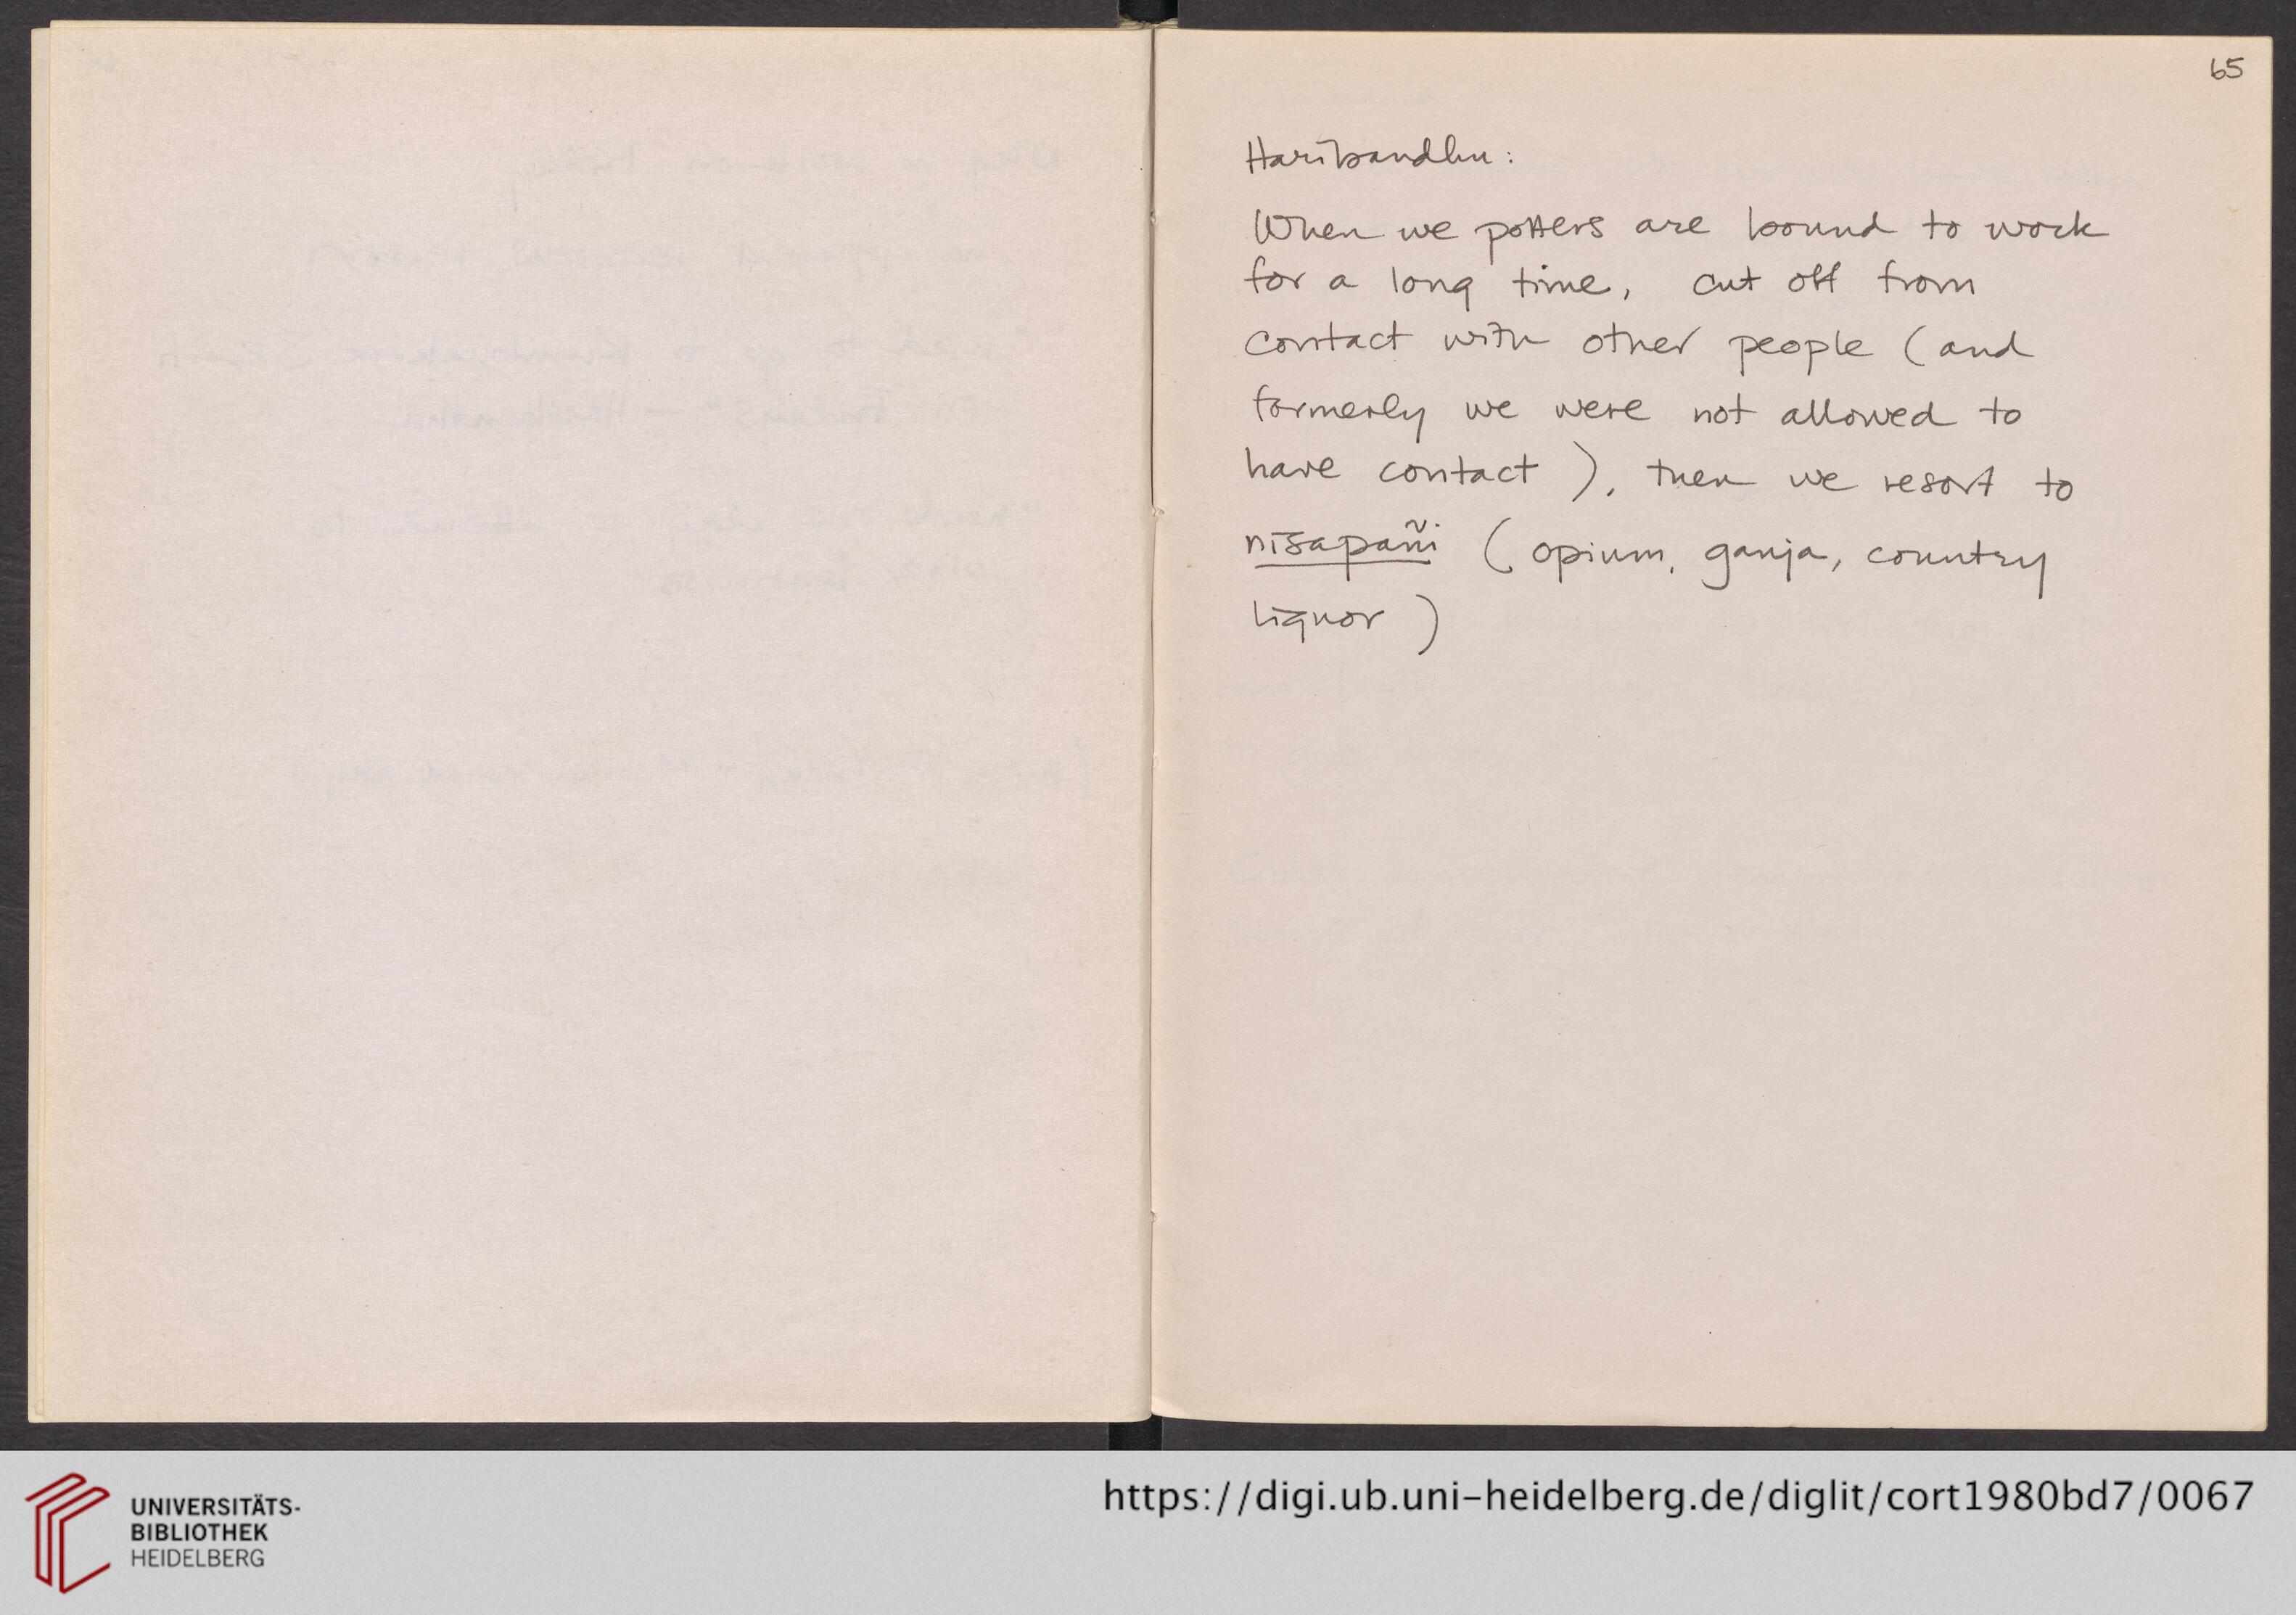 65
Haribandhu:
When we potters are bound to work
for a long time, cut off from
contact with other people (and
formerly we were not allowed to
have contact), then we resort to
nisapañi (opium, ganja, country
liquor)
UNIVERSITÄTS-
BIBLIOTHEK
HEIDELBERG
https://digi.ub.uni-heidelberg.de/diglit/cort1980bd7/0067